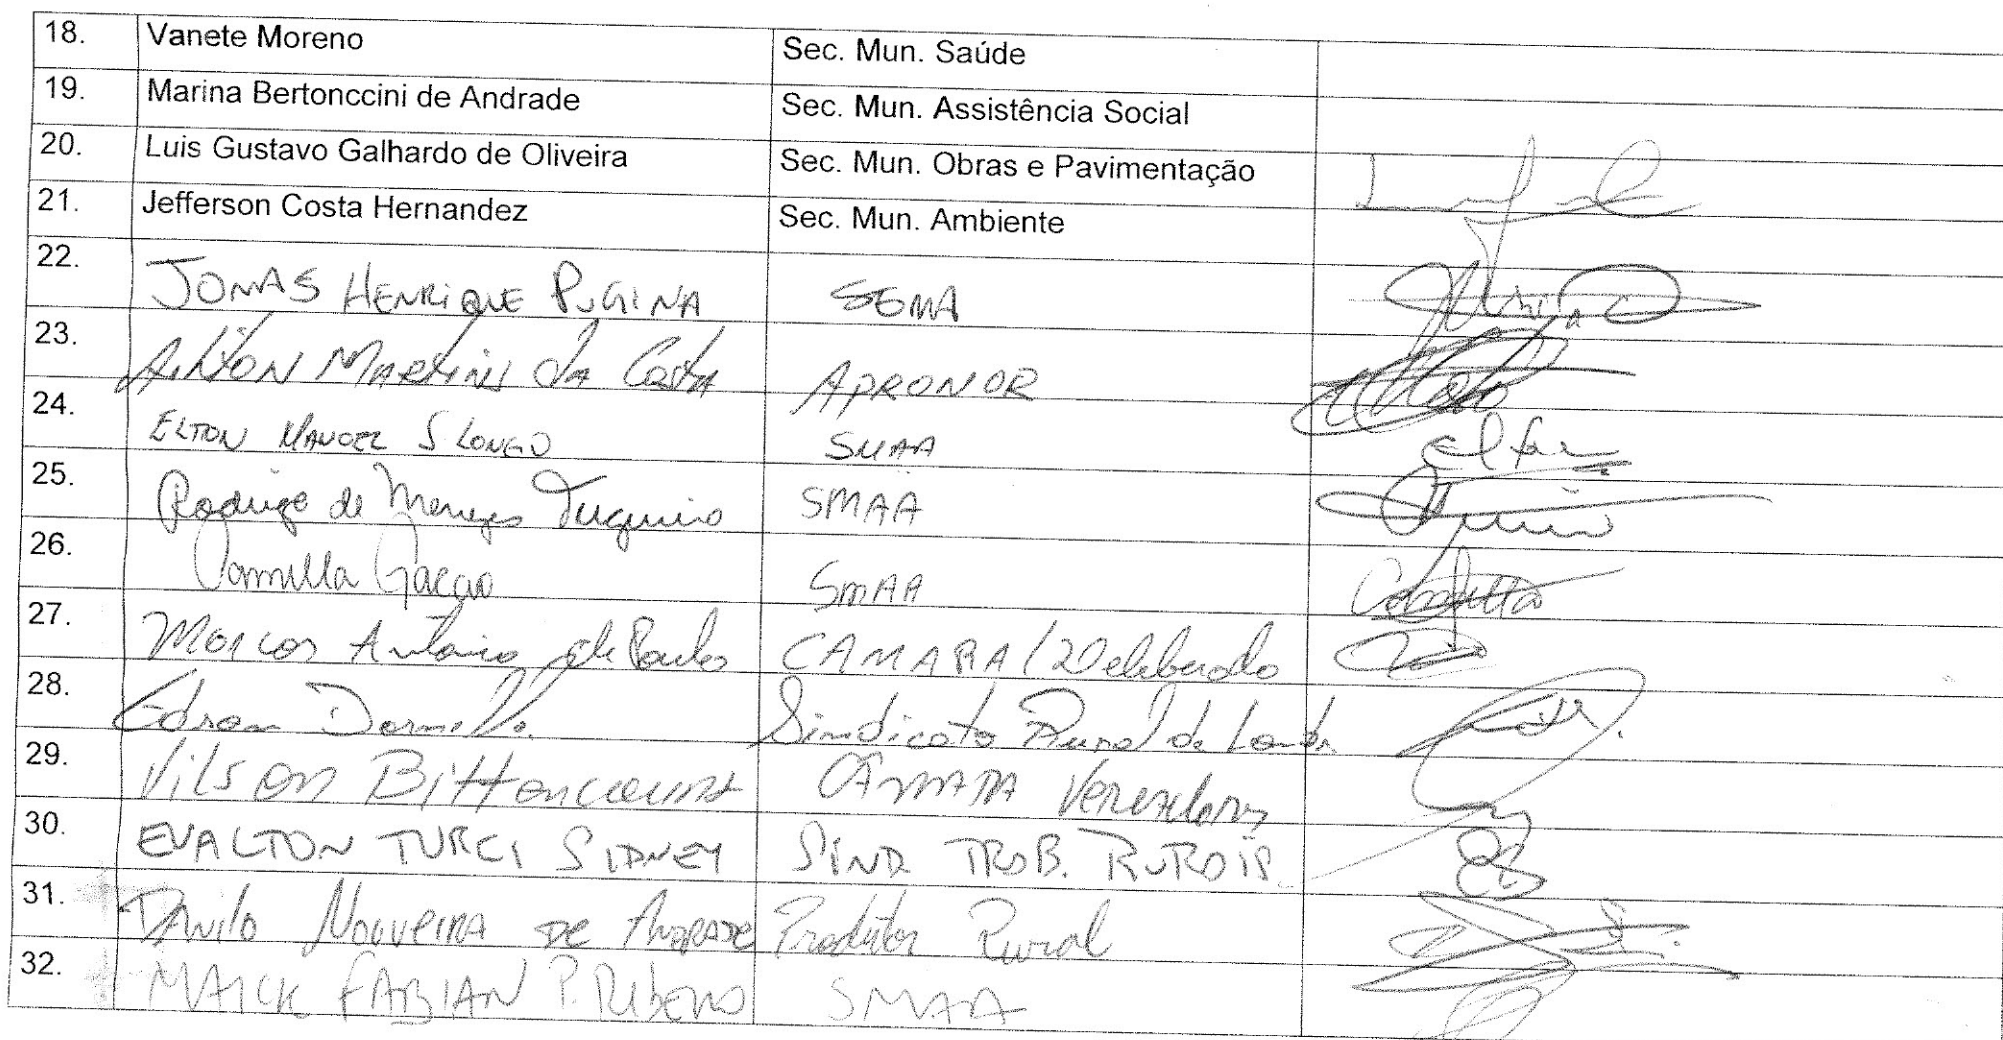 18. Vanete Moreno Sec. Mun. Saúde
19. Marina Bertonccini de Andrade Sec. Mun. Assistência Social
20. Luis Gustavo Galhardo de Oliveira Sec. Mun. Obras e Pavimentação
21. Jefferson Costa Hernandez Sec. Mun. Ambiente
22. JONAS HENRIQUE PUGINA SEMA
23. Ailton Martins da Costa APRONOR
24. ELTON MANOEL S LONGO SMAA
25. Rodrigo de Menezes SMAA
26. Camilla SMAA
27. Marcos Antonio de Paulo CAMARA /
28. Edson Sindicato Rural de
29. Vilson Bittencourt CÂMARA Vereadores
30. EVALTON TURCI SIDNEY SIND TRAB. RURAIS
31. Danilo Nogueira DE ANDRADE Produtor Rural
32. MAICK FABIAN P. Ribeiro SMAA